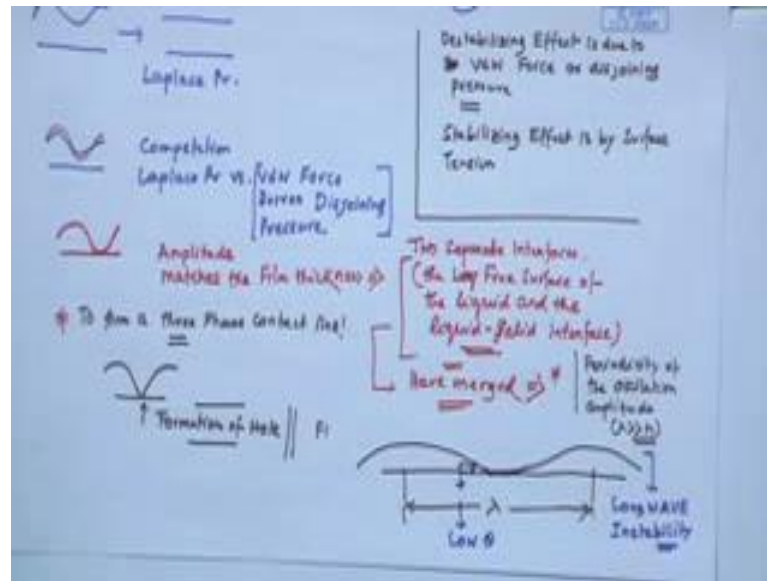 Laplace Pr.
Competition
Laplace Pr vs. VdW Force
Driven Disjoining
Pressure.
Amplitude
matches the Film thickness ⇒
* To form a Three Phase Contact line!
Formation of Hole
Destabilizing Effect is due to
VdW Force or disjoining
pressure
Stabilizing Effect is by Surface
Tension
Two Separate Interfaces
(the Free Surface of
the liquid and the
liquid-solid interface)
Have merged
Periodicity of
the oscillation
amplitude
(λ>>h)
λ
Low θ
Long WAVE
Instability